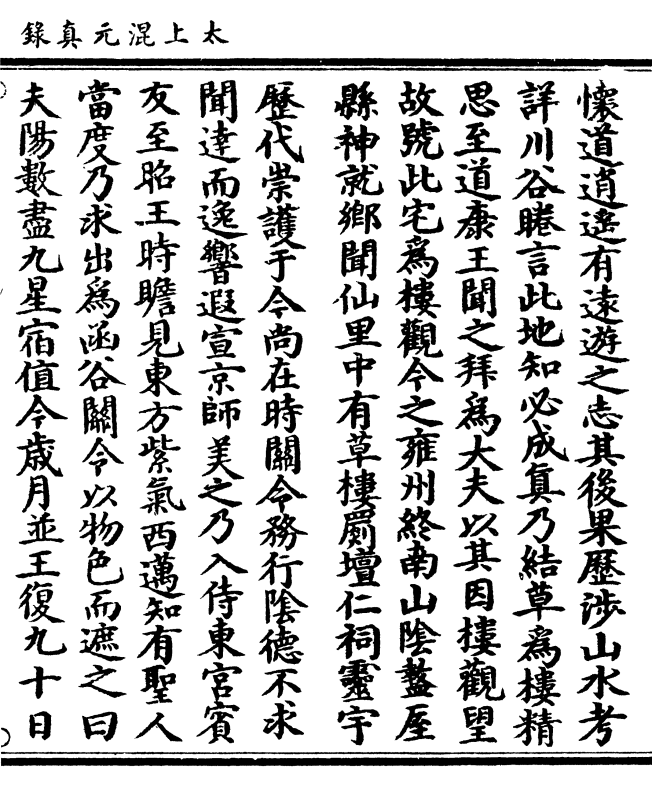 太上混元真錄
懷道逍遙有遠遊之志其後果歷涉山水考
詳川谷睠言此地知必成真乃結草為樓精
思至道康王聞之拜為大夫以其因樓觀望
故號此宅為樓觀今之雍州終南山陰盩厔
縣神就鄉聞仙里中有草樓罽壇仁祠靈宇
歷代崇護于今尚在時關令務行陰德不求
聞達而逸響遐宣京師美之乃入侍東宮賓
友至昭王時瞻見東方紫氣西邁知有聖人
當度乃求出為函谷關令以物色而遮之曰
夫陽數盡九星宿值今歲月並王復九十日